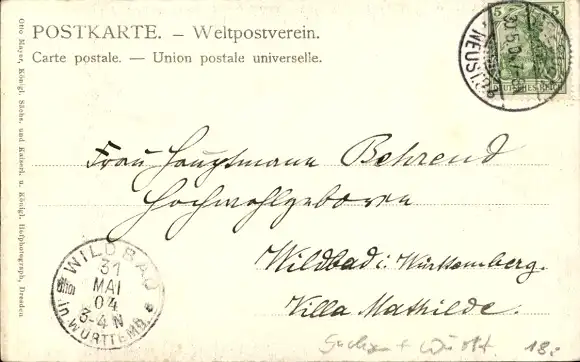 POSTKARTE. – Weltpostverein.
Carte postale. – Union postale universelle.
Otto Mayer, Königl. Sächs. und Kaiserl. u. Königl. Hofphotograph, Dresden
5
DEUTSCHES REICH
NEUST
30.5.04
Frau Hauptmann Behrend
Hochwohlgeboren
Wildbad i. Württemberg.
Villa Mathilde.
WILDBAD
31
MAI
04
3-4 N
in WÜRTTEMB.
Sachsen + Württ
18.-